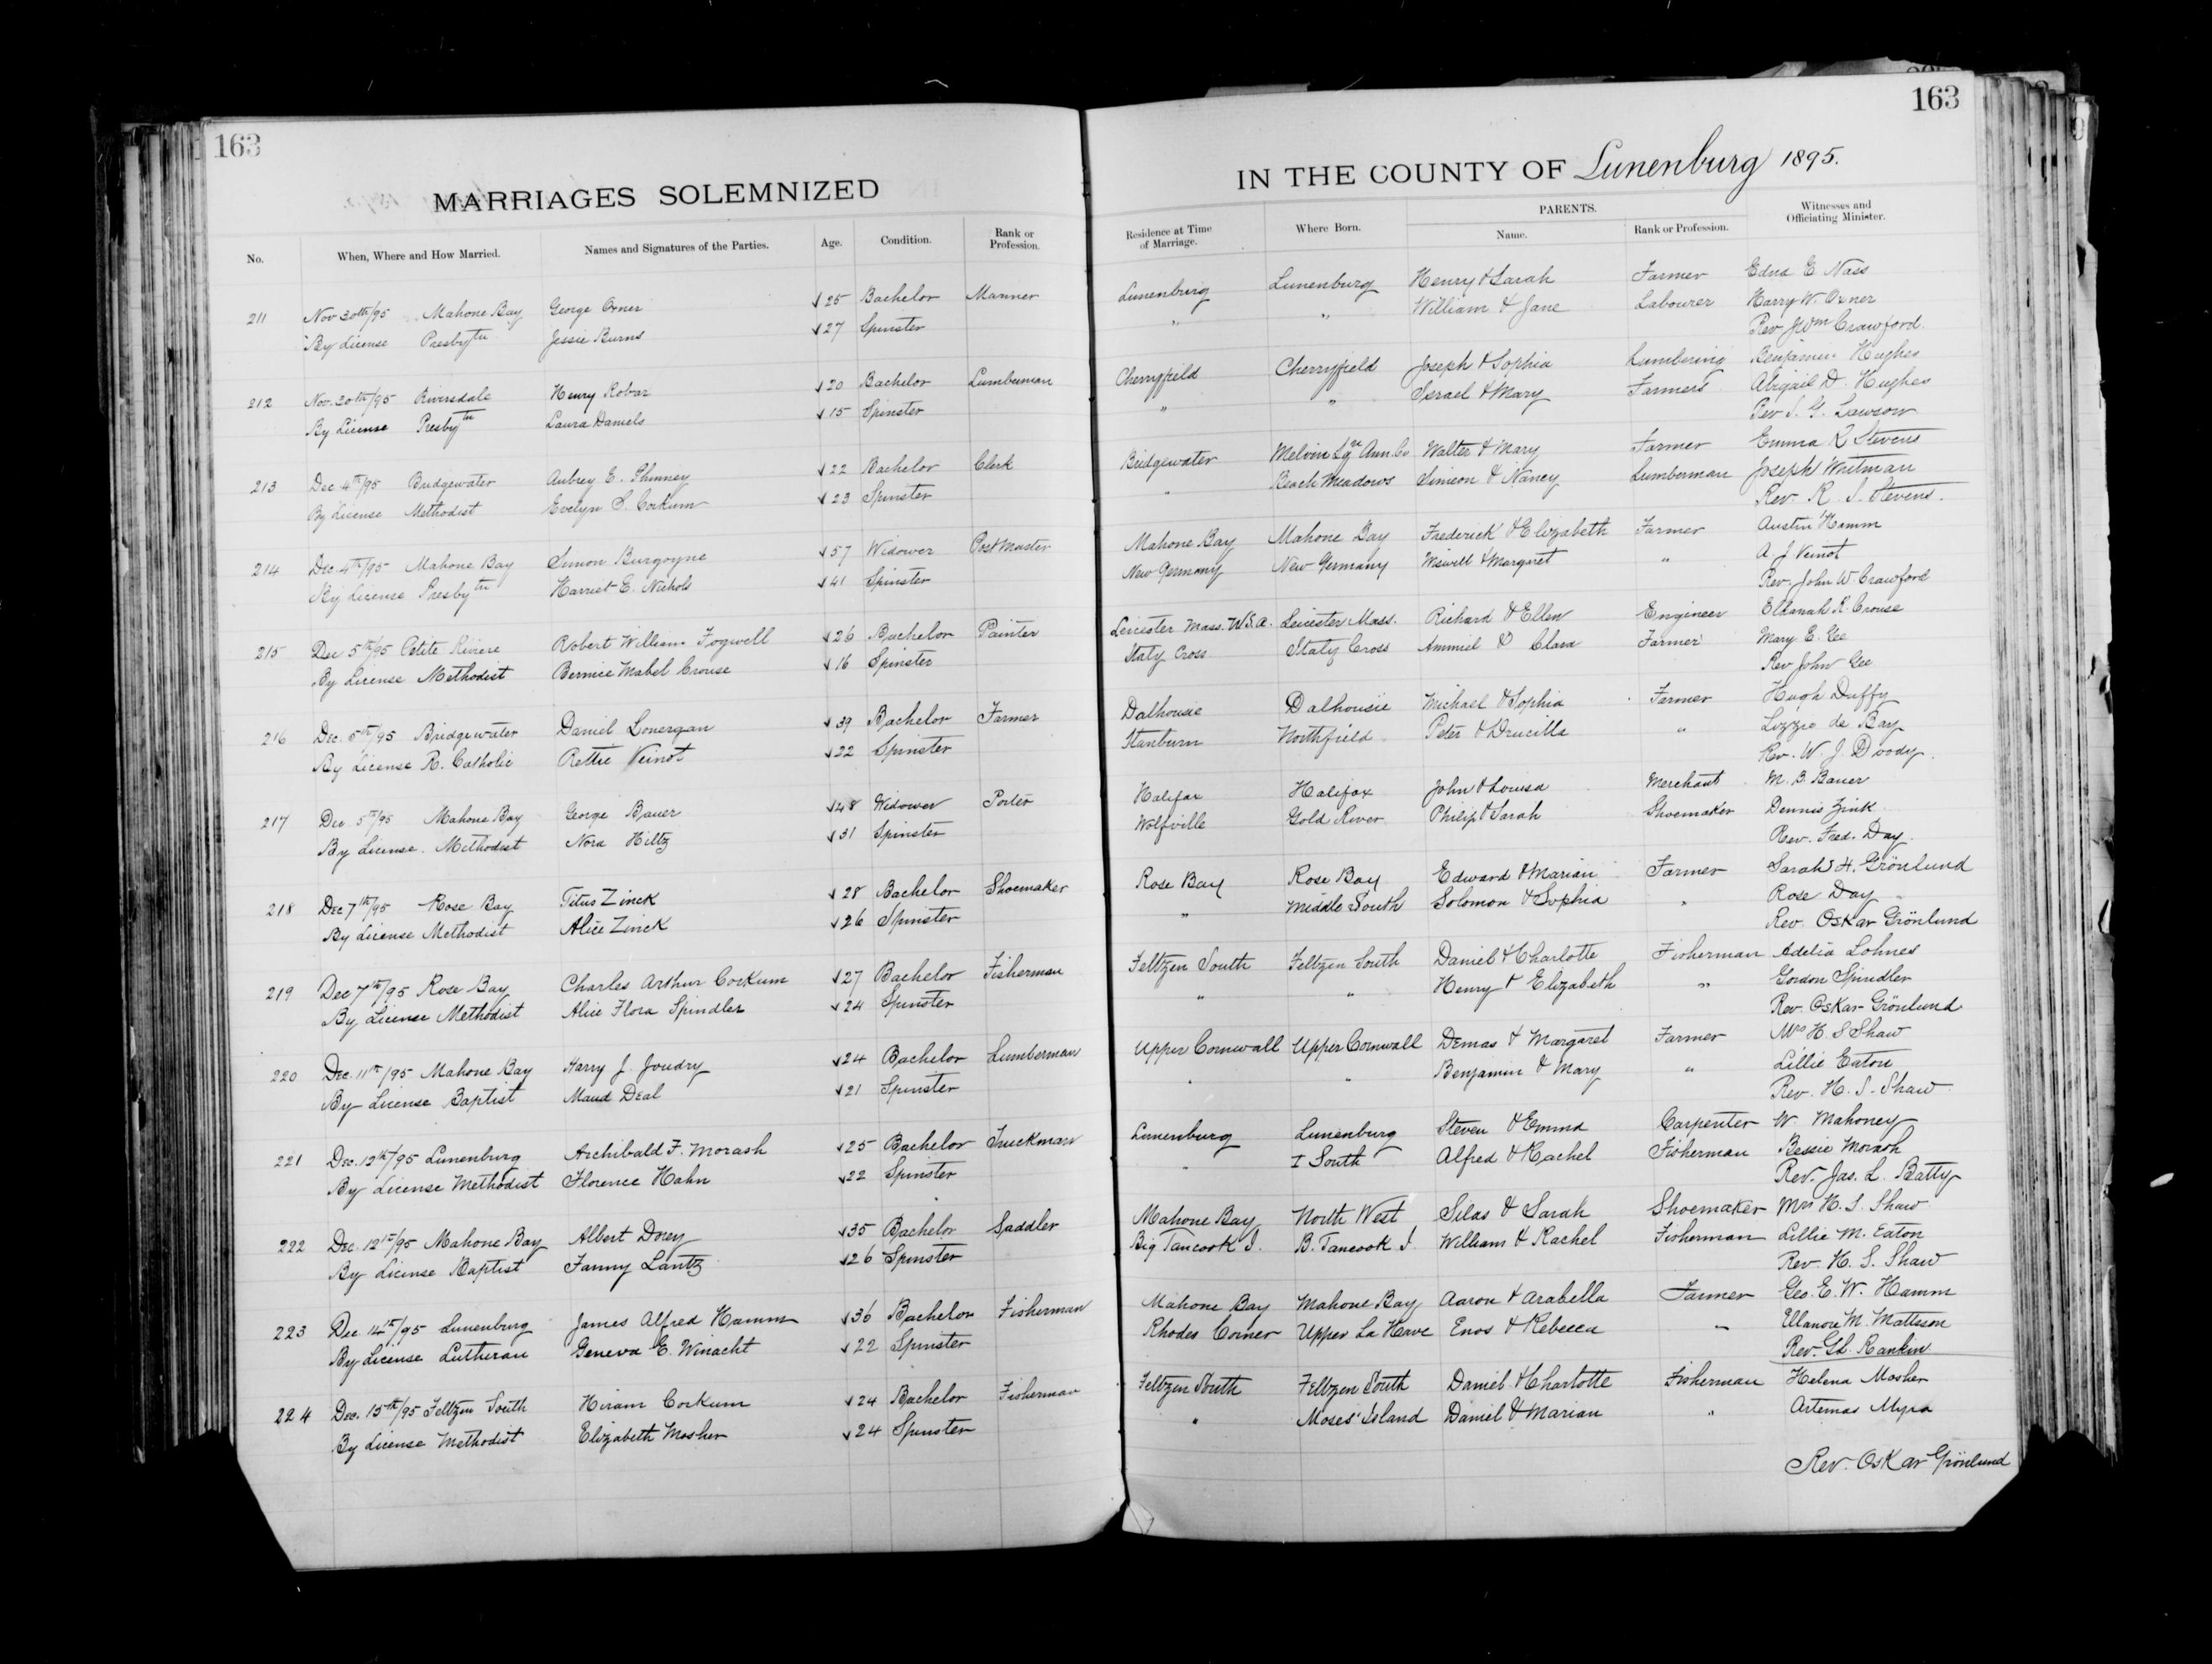 163
163
MARRIAGES SOLEMNIZED
IN THE COUNTY OF Lunenburg 1895.
No. When, Where and How Married. Names and Signatures of the Parties. Age. Condition. Rank or Profession. Residence at Time of Marriage. Where Born. PARENTS. Name. Rank or Profession. Witnesses and Officiating Minister.
211 Nov 30th/95 Mahone Bay George Oxner 25 Bachelor Mariner Lunenburg Lunenburg Henry & Sarah Farmer Edna E Nass
By License Presbytn Jessie Burns 27 Spinster " " William & Jane Labourer Harry W. Oxner
Rev Jno Wm Crawford
212 Nov. 30th/95 Riversdale Henry Robar 20 Bachelor Lumberman Cherryfield Cherryfield Joseph & Sophia Lumbering Benjamin Hughes
By License Presbytn Laura Daniels 15 Spinster " " Israel & Mary Farmers Abigail D. Hughes
Rev S. G. Lawson
213 Dec 4th/95 Bridgewater Aubrey E. Phinney 22 Bachelor Clerk Bridgewater Melvin Sqre Ann. Co Walter & Mary Farmer Emma R Stevens
By License Methodist Evelyn S. Corkum 23 Spinster " Beach Meadows Simeon & Nancy Lumberman Joseph Whitman
Rev. R. S. Stevens.
214 Dec. 4th/95 Mahone Bay Simon Burgoyne 57 Widower Post Master Mahone Bay Mahone Bay Frederick & Elizabeth Farmer Austin Hamm
By License Presbytn Harriet E. Nichols 41 Spinster New Germany New Germany Wiswell & Margaret " A. J. Veinot
Rev. John W. Crawford
215 Dec 5th/95 Petite Riviere Robert William Fogwell 26 Bachelor Painter Leicester Mass. U.S.A. Leicester Mass. Richard & Ellen Engineer Elkanah K Crouse
By License Methodist Bernice Mabel Crouse 16 Spinster Italy Cross Italy Cross Ammiel & Clara Farmer Mary E. Gee
Rev John Gee
216 Dec. 5th/95 Bridgewater Daniel Lonergan 39 Bachelor Farmer Dalhousie Dalhousie Michael & Sophia Farmer Hugh Duffy
By License R. Catholic Rettie Veinot 22 Spinster Stanburn Northfield Peter & Drucilla " Lizzie de Bay
Rev. W. J. Doody.
217 Dec 5th/95 Mahone Bay George Bauer 48 Widower Porter Halifax Halifax John & Louisa Merchant M. B. Bauer
By License. Methodist Nora Hiltz 31 Spinster Wolfville Gold River Philip & Sarah Shoemaker Dennis Zink
Rev. Fred. Day.
218 Dec 7th/95 Rose Bay Titus Zinck 28 Bachelor Shoemaker Rose Bay Rose Bay Edward & Marian Farmer Sarah H. Grönlund
By License Methodist Alice Zinck 26 Spinster " Middle South Solomon & Sophia " Rose Day
Rev. Oskar Grönlund
219 Dec 7th/95 Rose Bay Charles Arthur Corkum 27 Bachelor Fisherman Feltzen South Feltzen South Daniel & Charlotte Fisherman Adelia Lohnes
By License Methodist Alice Flora Spindler 24 Spinster " " Henry & Elizabeth " Gordon Spindler
Rev. Oskar Grönlund
220 Dec. 11th/95 Mahone Bay Harry J. Joudry 24 Bachelor Lumberman Upper Cornwall Upper Cornwall Demas & Margaret Farmer Mrs H. S Shaw
By License Baptist Maud Deal 21 Spinster " " Benjamin & Mary " Lillie Eaton
Rev. H. S. Shaw
221 Dec. 12th/95 Lunenburg Archibald F. Morash 25 Bachelor Truckman Lunenburg Lunenburg Steven & Emma Carpenter W. Mahoney
By License Methodist Florence Hahn 22 Spinster " I South Alfred & Rachel Fisherman Bessie Morash
Rev. Jas. L. Batty
222 Dec. 12th/95 Mahone Bay Albert Dorey 35 Bachelor Saddler Mahone Bay North West Silas & Sarah Shoemaker Mrs H. S. Shaw
By License Baptist Fanny Lantz 26 Spinster Big Tancook I. B. Tancook I. William & Rachel Fisherman Lillie M. Eaton
Rev. H. S. Shaw
223 Dec. 14th/95 Lunenburg James Alfred Hamm 36 Bachelor Fisherman Mahone Bay Mahone Bay Aaron & Arabella Farmer Geo. E. W. Hamm
By License Lutheran Geneva E. Winacht 22 Spinster Rhodes Corner Upper La Have Enos & Rebecca " Ellanore M. Matteson
Rev. G. L. Rankin
224 Dec. 15th/95 Feltzen South Hiram Corkum 24 Bachelor Fisherman Feltzen South Feltzen South Daniel & Charlotte Fisherman Helena Mosher
By License Methodist Elizabeth Mosher 24 Spinster " Moses' Island Daniel & Marian " Artemas Myra
Rev. Oskar Grönlund